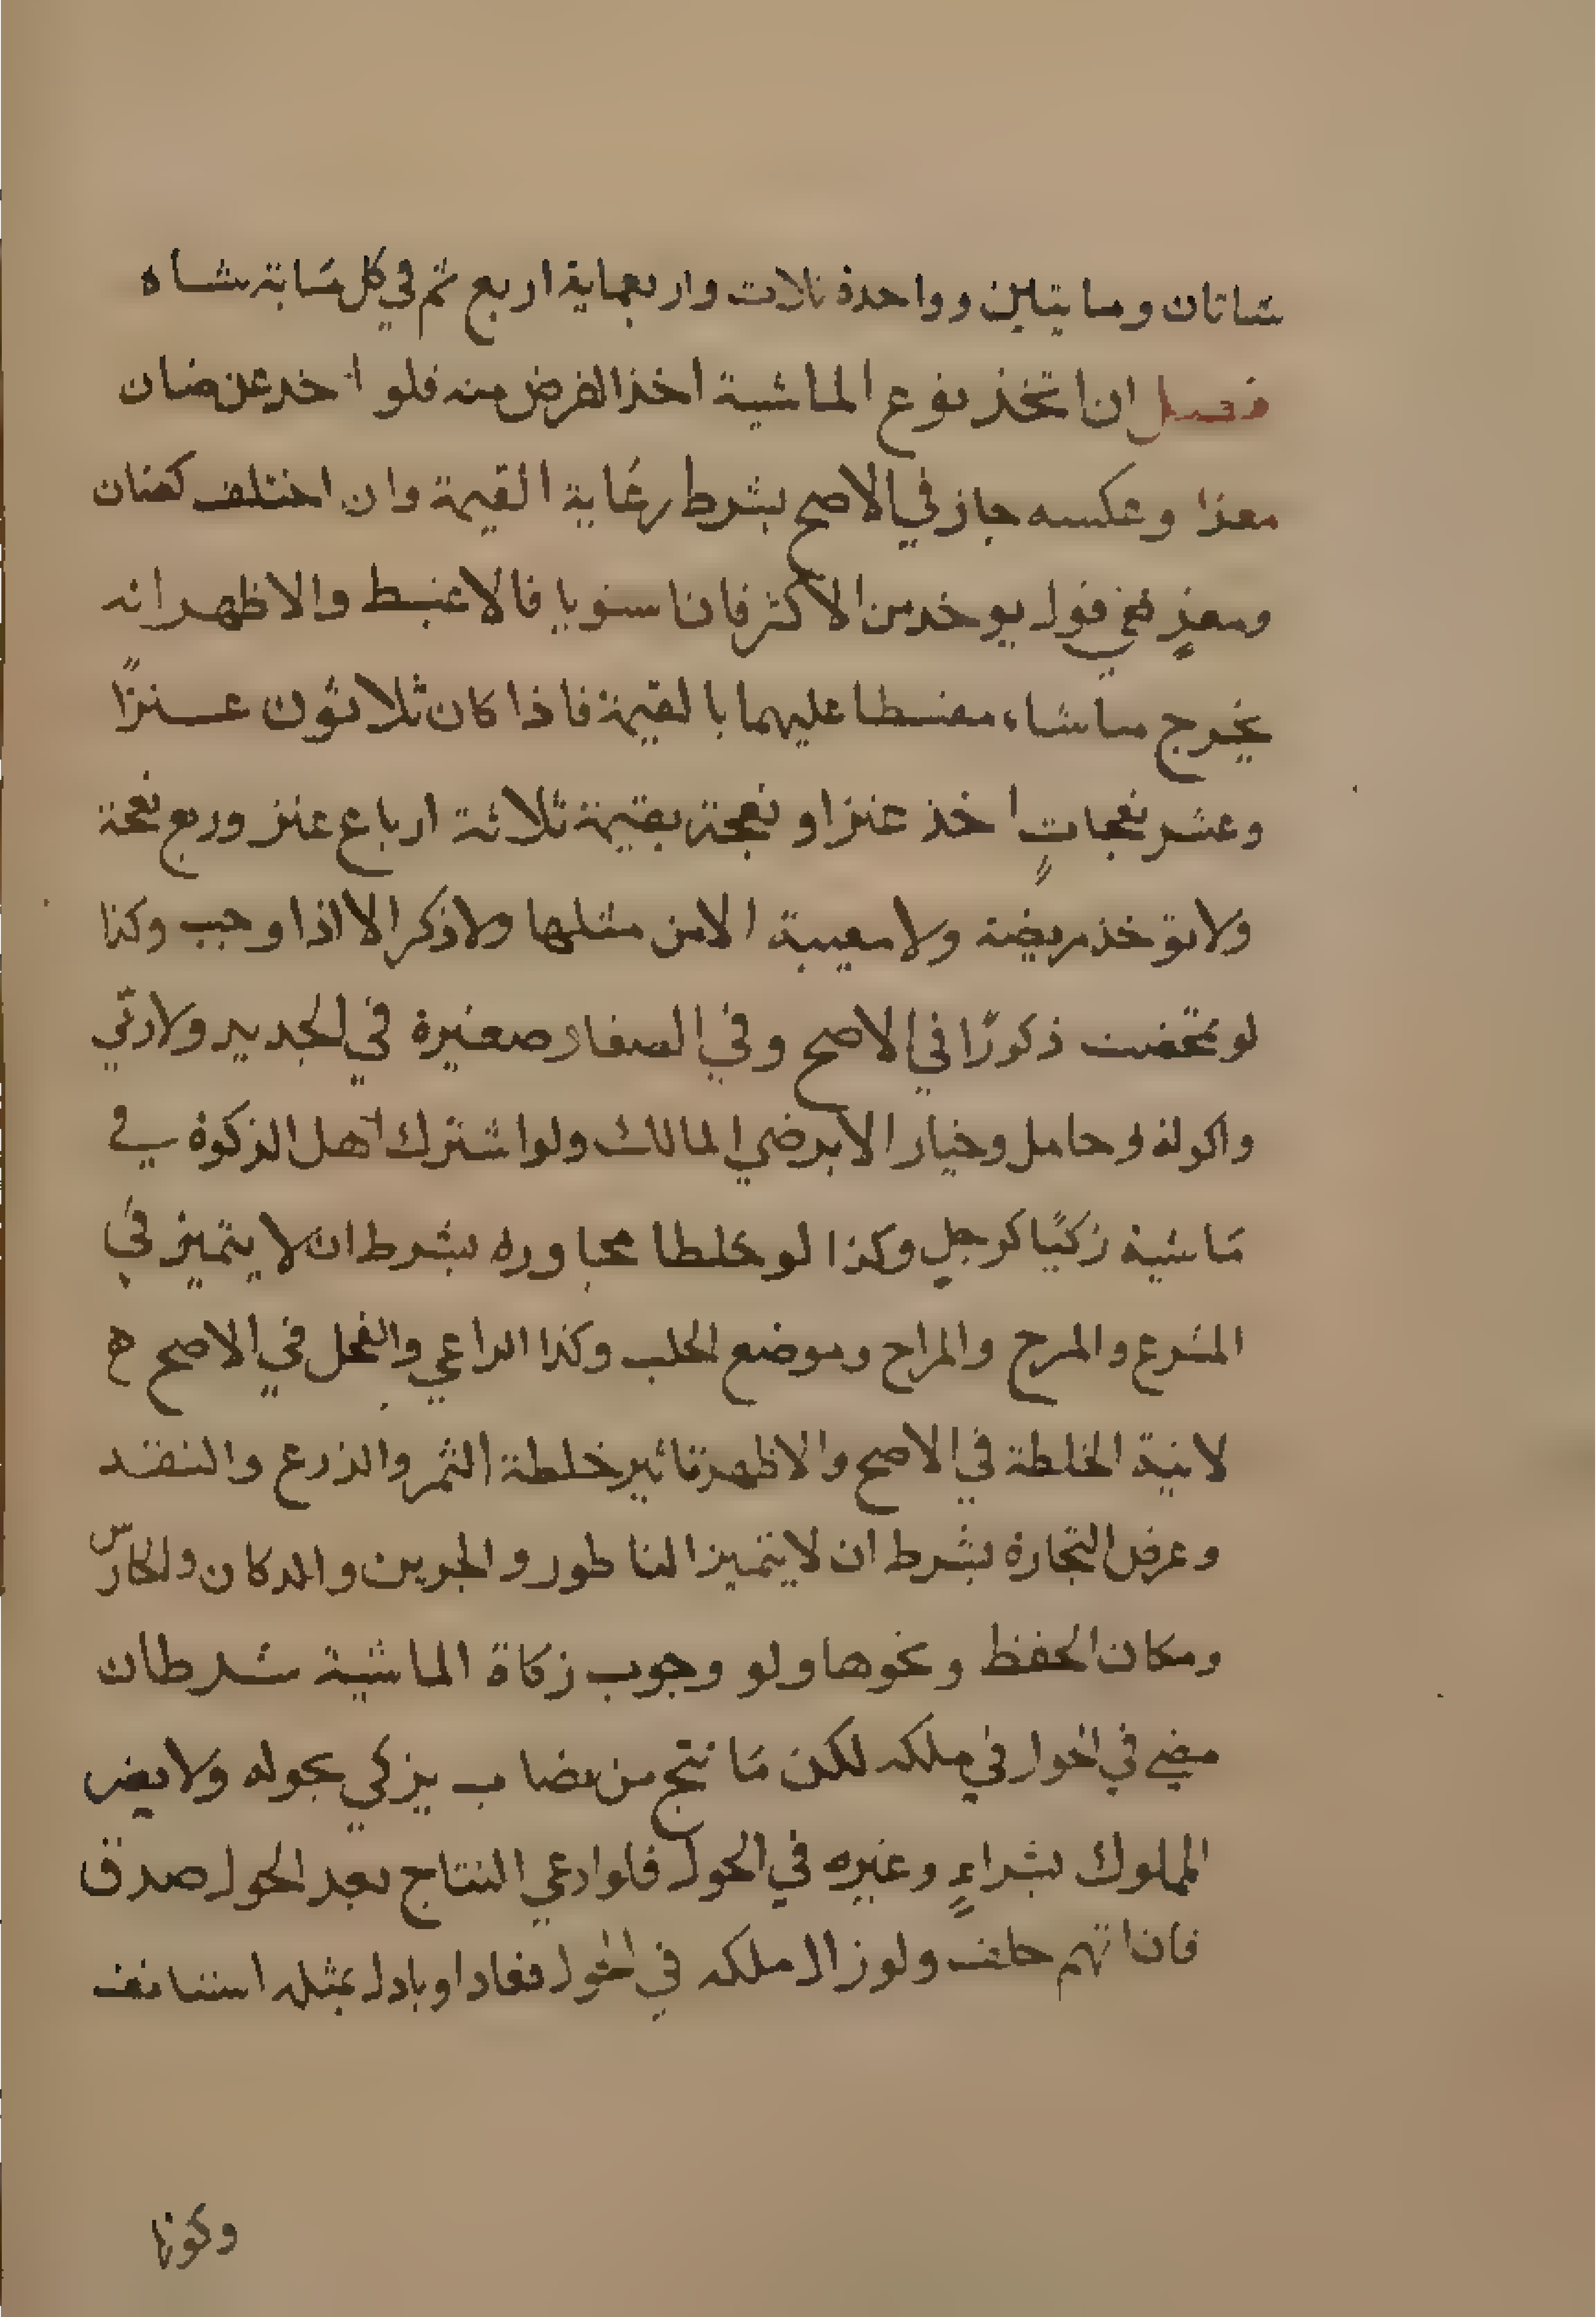 شاتان ومايتاين وواحدة ثلاث واربعماية اربع ثم في كل مَاية شاه
فصل ان اتخذ نوع الماشية اخذ الفرض منه فلو اخد عن ضان
معزا وعكسه جاز في الاصح بشرط رعَاية القيمة وان اختلف كضان
ومعزٍ ففي قول يوخد من الاكثر فان استويا فالاغبط والاظهر انه
يخرج ماشاء مقسطا عليهما بالقيمة فاذا كان ثلاثون عنزًا
وعشر نعجاتٍ اخذ عنزا او نعجة بقيمة ثلاثة ارباع عنز وربع نعجة
ولا توخذ مريضة ولا معيبة الا من مثلها ولا ذكر الا اذا وجب وكذا
لو تمحضت ذكورًا في الاصح وفي الصغار صغيرة في الجديد ولا ربّي
واكولة وحامل وخيار الا برضي المالك ولو اشترك اهل الزكوة في
مَاشية زكيًا كرجلٍ وكذا لو خلطا مجاوره بشرط ان لا يتميز في
المشرع والمرح والمراح وموضع الحلب وكذا الراعي والفحل في الاصح ه
لا نية الخلطة في الاصح والاظهر تاثير خلطة الثمر والزرع والنقد
وعرض التجارة بشرط ان لا يتميز الناطور والجرين والدكان والحارس
ومكان الحفظ ونحوها ولو وجوب زكاة الماشية شرطان
مضي في الحول في ملكه لكن مَا نتج من نصاب يزكي بحوله ولا يضر
المملوك بشراءٍ وغيره في الحول فلو ادعي النتاج بعد الحول صدق
فان اتهم حلف ولو زال ملكه في الحول فعاد او بادل بمثله استانف
وكونها